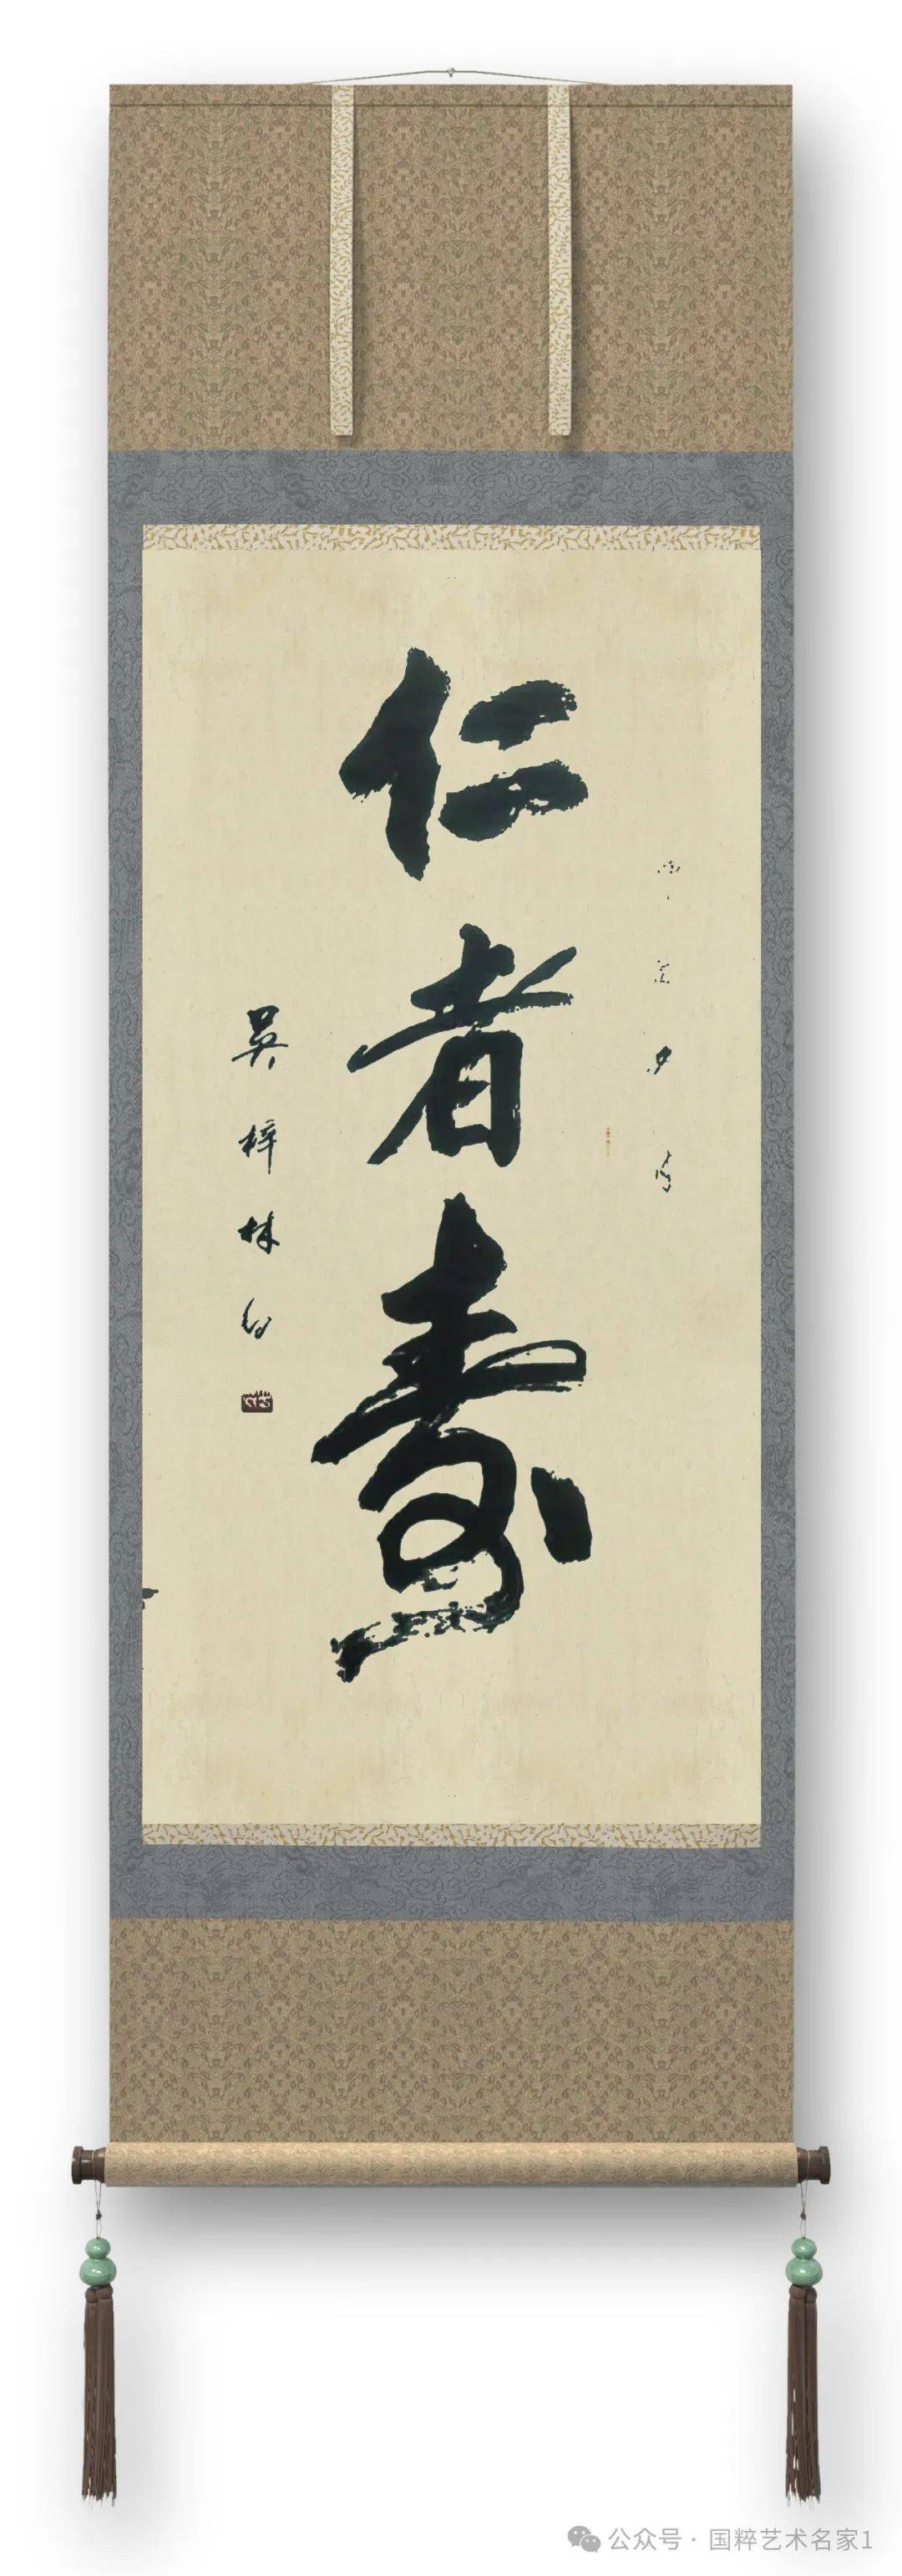 仁者寿
吴梓林
公众号·国粹艺术名家1